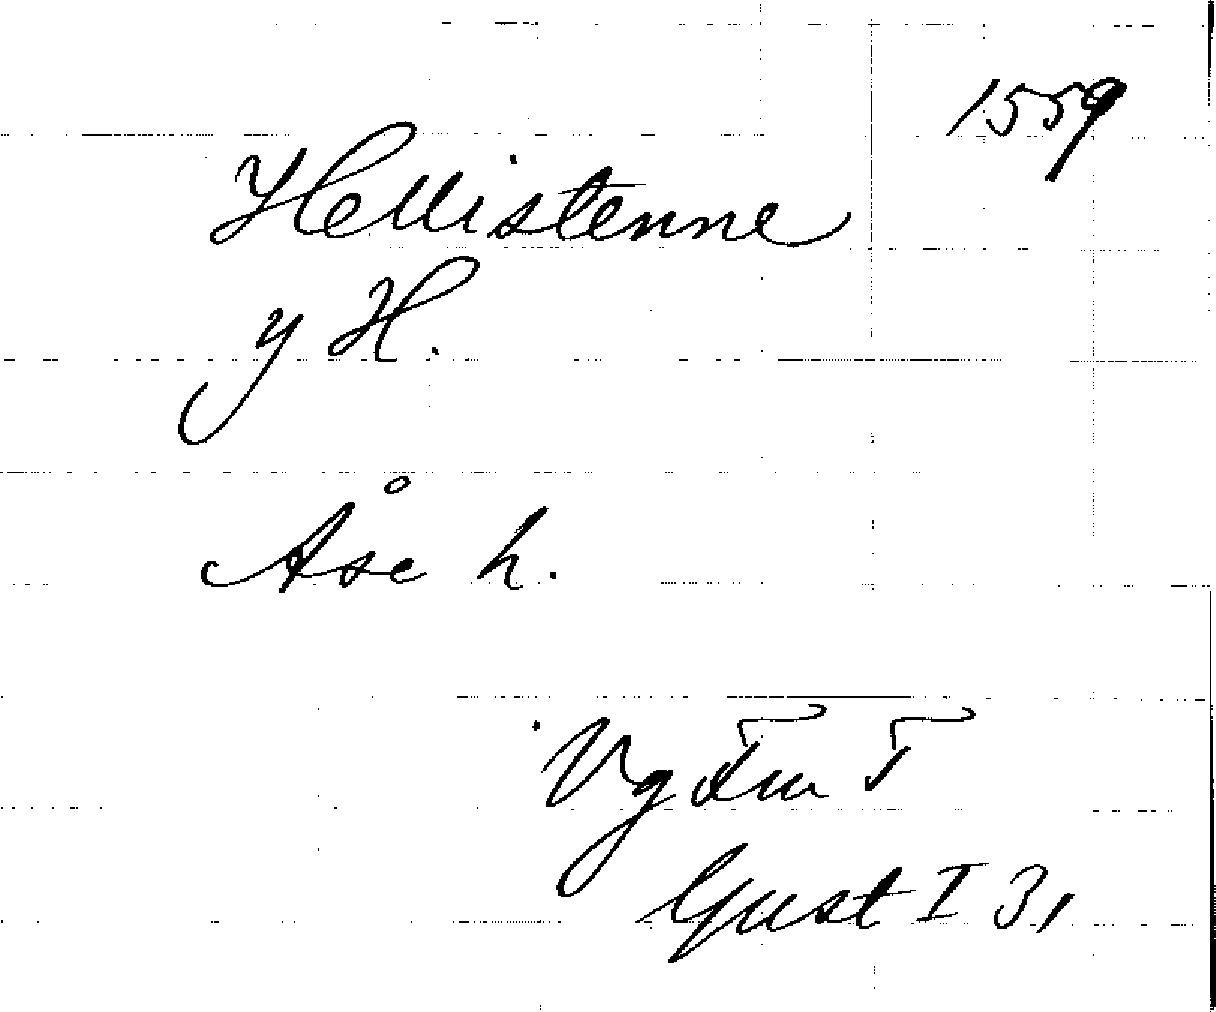 1559
Hellistenne
y H.
Åse h.
Vg Fru 5
Gust I 31